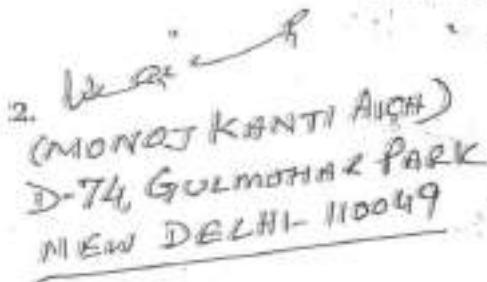 2.
(MONOJ KANTI AICH)
D-74, GULMOHAR PARK
NEW DELHI- 110049